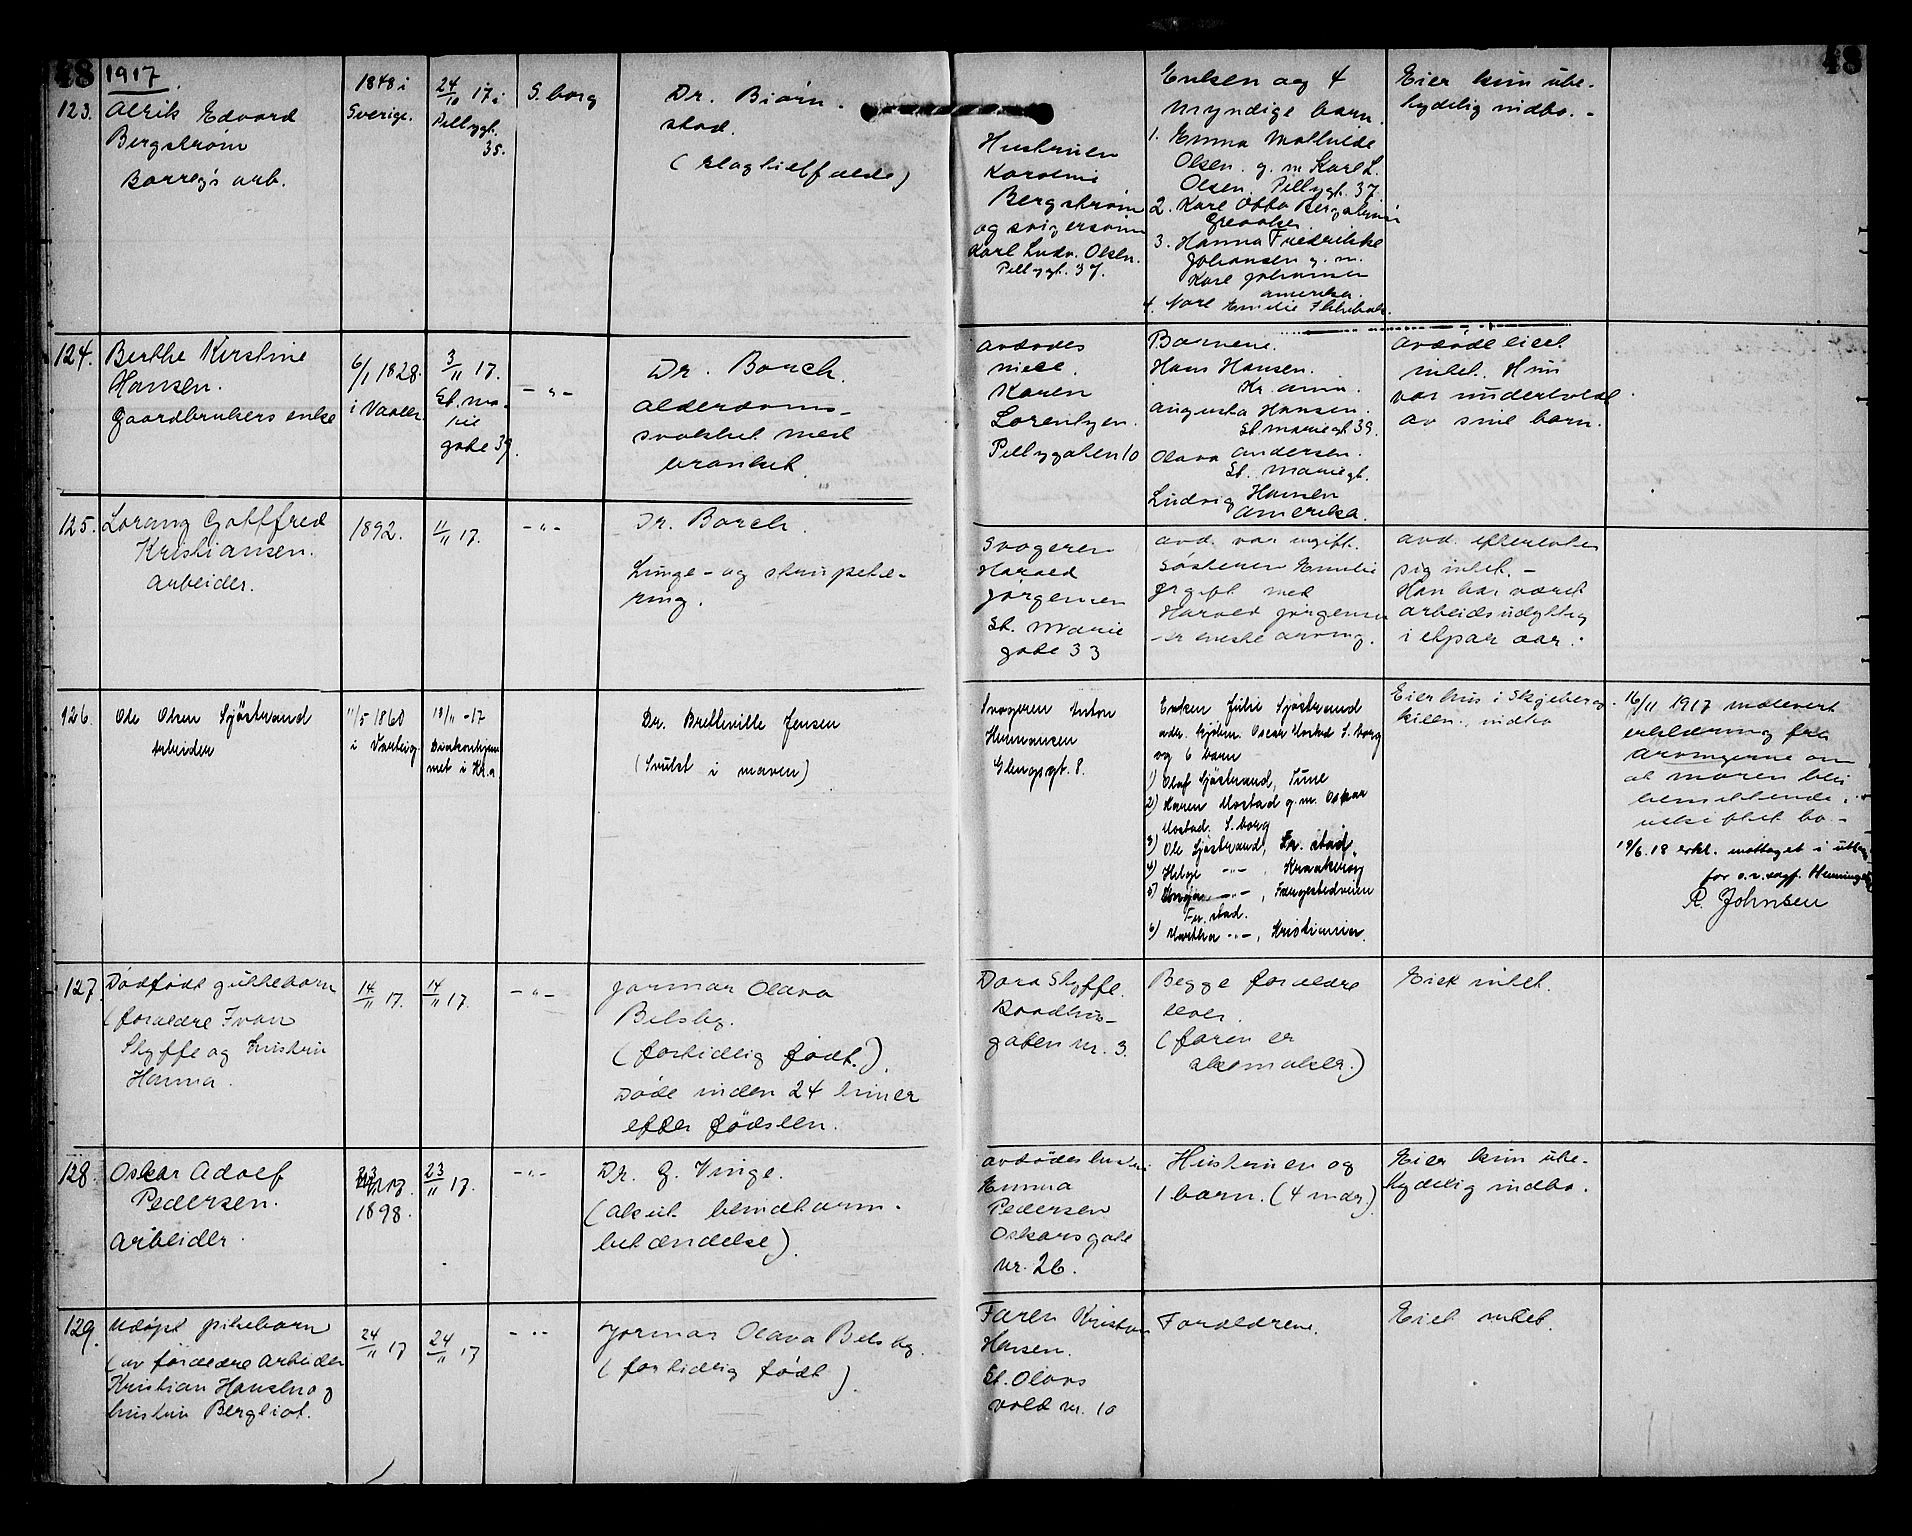 48
48
1917
123.
Alrik Edvard
Bergstrøm
Borreg's arb.
1848 i
Sverige.
24/10 17 i
Pellygt.
35.
S.borg
Dr. Biørn-
stad.
(slagtilfælde)
Hustruen
Karoline
Bergstrøm
og svigersønn
Karl Ludv. Olsen.
Pellygt. 37.
Enken og 4
myndige barn.
1. Emma Mathilde
Olsen. g. m. Karl L.
Olsen. Pellygt. 37.
2. Karl Otto Bergstrøm
3. Hanna Fredrikke
Johansen g. m.
Karl Johansen
Amerika.
4.
Eier kun ube-
tydelig indbo. -
124.
Berthe Kirstine
Hansen.
Gaardbrukers enke
6/1 1828.
i Vaaler
3/11 17.
St. ma-
rie
gate 39.
- " -
Dr. Borch.
Alderdoms-
svakhet med
bronkit.
Avdødes
niese.
Karen
Lorentzen.
Pellygaten 10
Barnene.
Hans Hansen.
Kr.ania.
Augusta Hansen.
St. mariegt 39.
Olava Andersen.
St. Mariegt.
Ludvig Hansen
Amerika.
Avdøde eiet
intet. Hun
var underholdt
av sine barn.
125.
Lorang Gottfred
Kristiansen.
Arbeider.
1892.
11/11 17.
- " -
Dr. Borch.
Lunge- og strupetæ-
ring.
Svogeren
Harald
Jørgensen
St. Marie
gate 33
Avd. var ugift.
Søsteren Emilie
gift med
Harald Jørgensen
er eneste arving.
Avd. efterlot
sig intet. -
Han har været
arbeidsudygtig
i etpar aar.
126.
Ole Olsen Sjøstrand
Arbeider
11/5 1860
i Varteig
19/11 -17
Diakonhjem
met i Kr.a
Dr. Bretteville Jensen
(Svulst i maven)
Svogeren Anton
Hermansen
Glengsgt. 8.
Enken Julie Sjøstrand
adr. Oscar Mostad S.borg
og 6 barn
1) Olaf Sjøstrand, Tune
2) Karen Mostad g.m. Oskar
Mostad. S.borg
3) Ole Sjøstrand, Fr.stad.
4) Helge -"- , Kraakerøy
5) -"- , Færgestedveien
Fr.stad.
6) Martha -"- , Kristiania.
Eier hus i Skjeberg
kilen, indbo
16/11 1917 indlevert
erklæring fra
arvingerne om
at moren blir
besittende i
uskiftet bo -
19/6.18 erkl. mottaget i
for o.r.sagf. Henningsen
R. Johnsen
127.
Dødfødt guttebarn
(forældre Ivan
Skyffe og hustru
Hanna.
14/11 17.
14/11 17.
- " -
Jormor Olava
Belsby.
(fortidlig født.).
Døde inden 24 timer
efter fødselen.
Dora Skyffe.
Raadhus-
gaten nr. 3.
Begge forældre
lever.
(faren er
skomaker.)
Eiet intet.
128.
Oskar Adolf
Pedersen.
Arbeider.
1898.
23/11 17.
- " -
Dr. G. Vinge.
(akut blindtarm-
betændelse).
Avdødes hustru
Emma
Pedersen
Oskarsgate
nr. 26.
Hustruen og
1 barn. (4 mdr)
Eier kun ube-
tydelig indbo.
129.
Udøpt pikebarn
(av forældre Arbeider
Kristian Hansen og
hustru Bergliot.
24/11 17
24/11 17
- " -
Jormor Olava Belsby.
(fortidlig født).
Faren Kristian
Hansen.
St. Olavs
vold nr. 10
Forældrene.
Eiet intet.